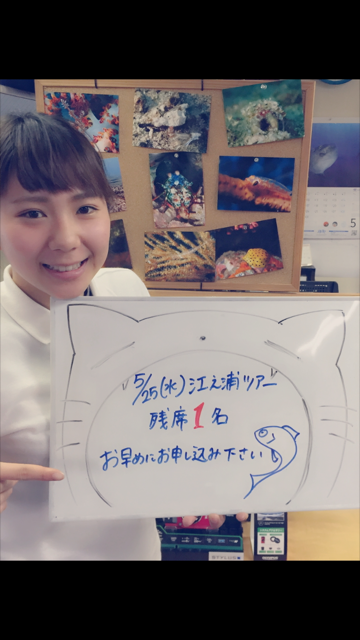 5
5/25(水)江之浦ツアー
残席1名
お早めにお申し込み下さい